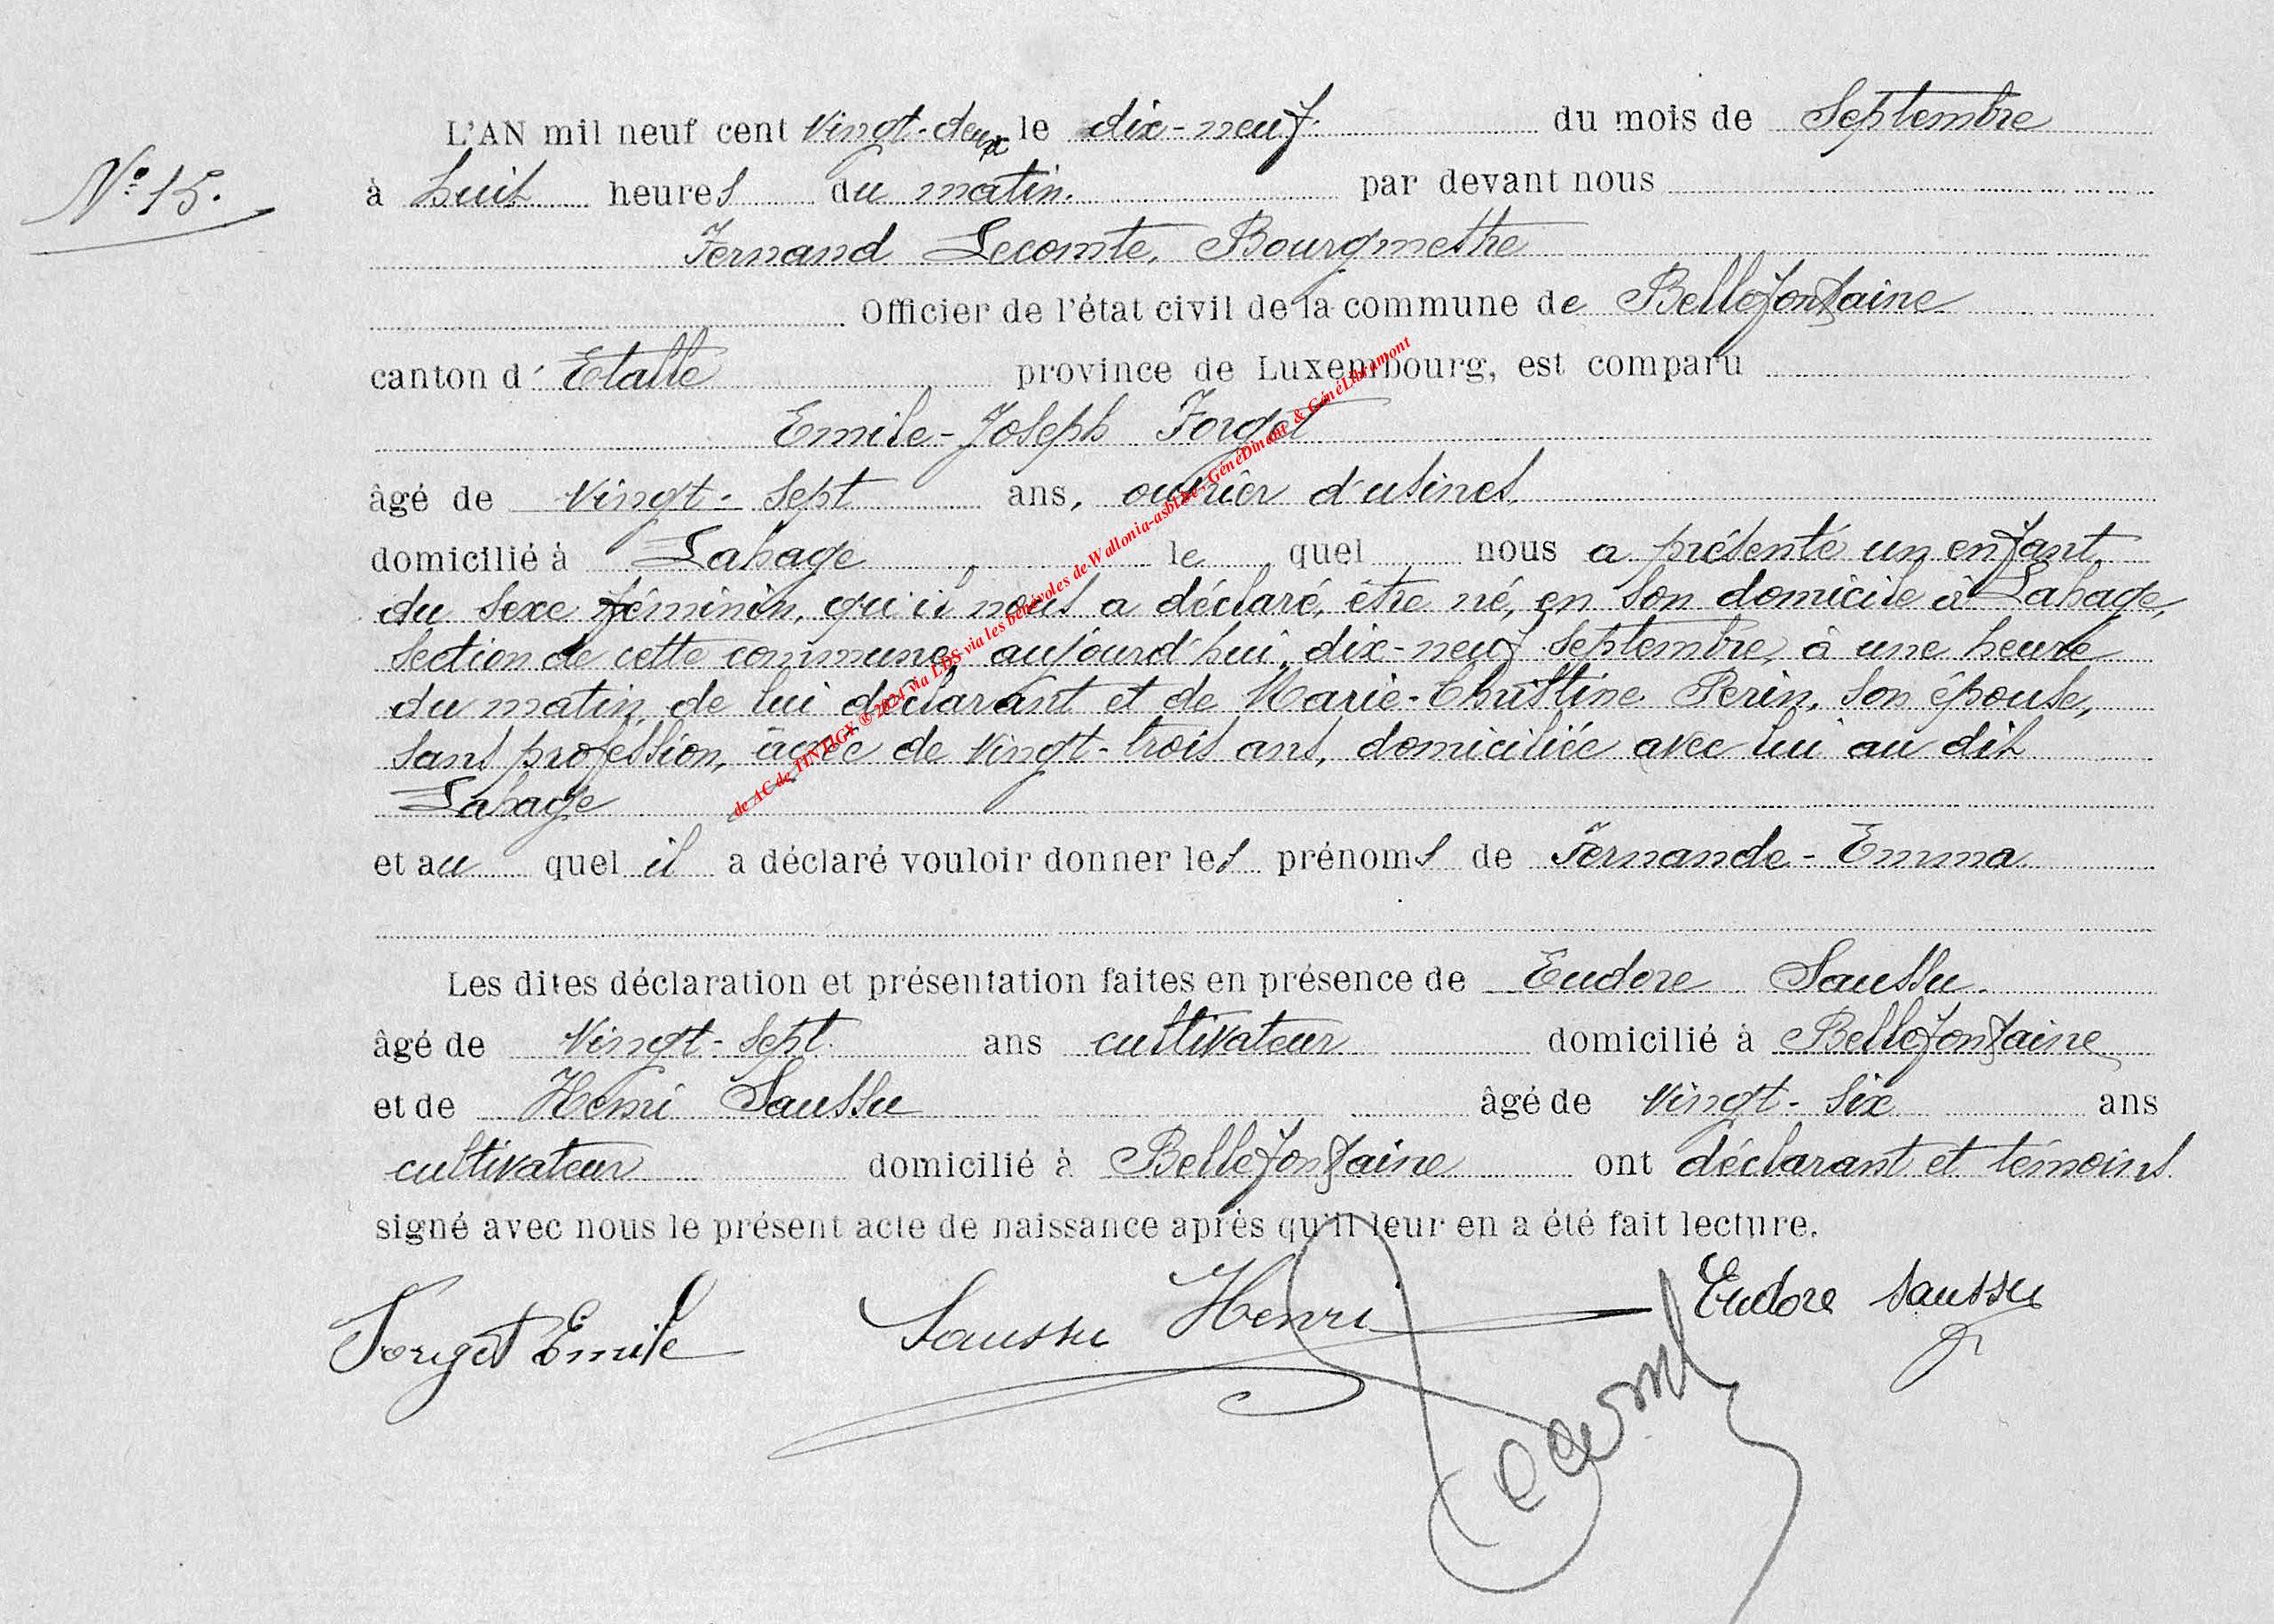 L'AN mil neuf cent vingt-deux le dix-neuf du mois de Septembre
N° 15.
à huit heures du matin. par devant nous
Fernand Lecomte, Bourgmestre
Officier de l'état civil de la commune de Bellefontaine
canton d' Etalle province de Luxembourg, est comparu
Emile-Joseph Forget
âgé de vingt-sept ans, ouvrier d'usines,
domicilié à Lahage le quel nous a présenté un enfant
du sexe féminin, qu'il nous a déclaré, être né, en son domicile à Lahage,
section de cette commune, aujourd'hui, dix-neuf septembre, à une heure
du matin, de lui déclarant et de Marie-Christine Perin, son épouse,
sans profession, âgée de vingt-trois ans, domiciliée avec lui au dit
Lahage
et au quel il a déclaré vouloir donner les prénoms de Fernande-Emma
Les dites déclaration et présentation faites en présence de Eudore Saussu.
âgé de vingt-sept. ans cultivateur domicilié à Bellefontaine
et de Henri Saussu âgé de vingt-six ans
cultivateur domicilié à Bellefontaine ont déclarant et témoins
signé avec nous le présent acte de naissance après qu'il leur en a été fait lecture.
Forget Emile Saussu Henri Eudore Saussu
de AC de TINTIGY ® 2024 via LDS via les bénévoles de Wallonia-asbl.be - GénéDinant & GénéLibramont